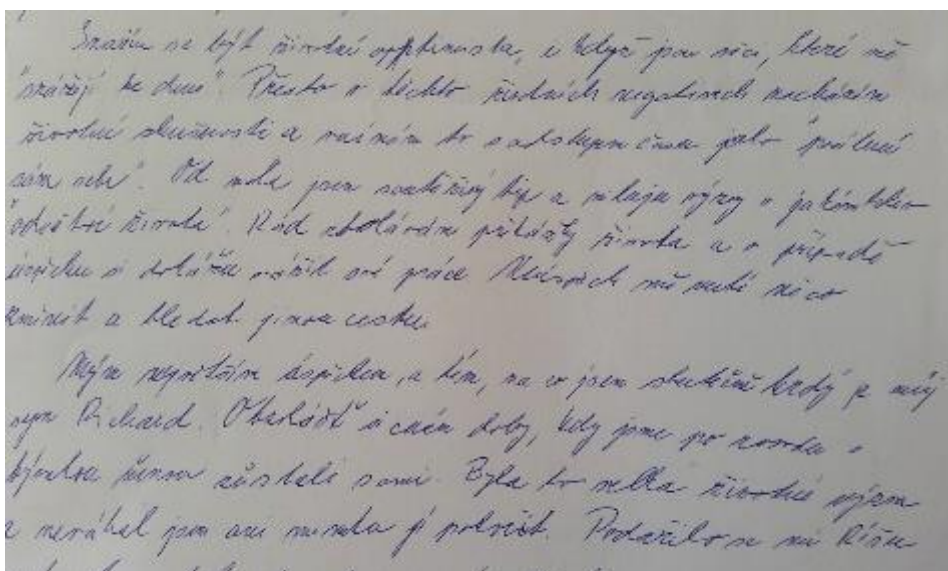 Snažím se být životní opptimista, i když jsou věci, které mě
"srážejí ke dnu". Přesto v těchto životních negativech nacházím
životní zkušenosti a vnímám to s odstupem času jako "poznání
sám sebe". Od mala jsem soutěživý typ a miluju výzvy v jakémkoliv
"odvětví života". Rád zdolávám překážky života a v případě
úspěchu si dokážu vážit své práce. Neúspěch mě nutí něco
změnit a hledat jinou cestu.
Mým největším úspěchem, a tím, na co jsem skutečně hrdý je můj
syn Richard. Obzvlášť si cením doby, kdy jsme po rozvodu s
bývalou ženou zůstali sami. Byla to velká životní výzva
a neváhal jsem ani minutu ji potvrdit. Podařilo se mi Ríšu